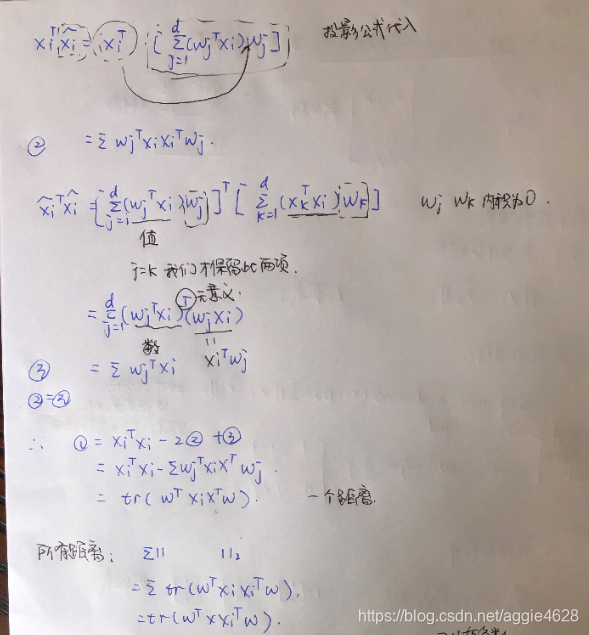 xiᵀ x̂i = xiᵀ [ Σ_{j=1}^{d} (wjᵀxi) wj ] 投影公式代入
② = Σ wjᵀ xi xiᵀ wj.
x̂iᵀ x̂i = [ Σ_{j=1}^{d} (wjᵀxi) wj ]ᵀ [ Σ_{k=1}^{d} (xkᵀxi) wk ] wj wk 内积为0.
值
j=k 我们才保留此两项.
T 无意义.
= Σ_{j=1}^{d} (wjᵀxi)(wjxi)
数 || xiᵀwj
③ = Σ wjᵀxi
②=③
∴ ① = xiᵀxi - 2② + ③
= xiᵀxi - Σwjᵀxixᵀwj
= tr( wᵀ xixᵀw ). 一个距离.
所有距离: Σ|| ||₂
= Σ tr(wᵀxi xiᵀw).
= tr(wᵀx xiᵀw).
https://blog.csdn.net/aggie4628